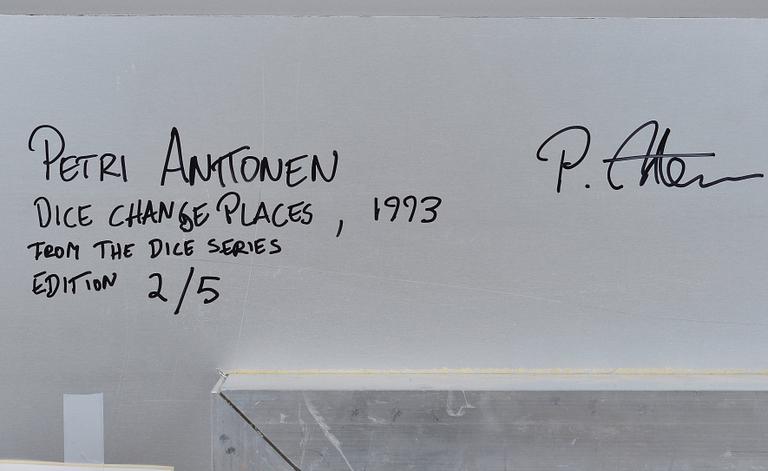 PETRI ANTTONEN
DICE CHANGE PLACES, 1993
FROM THE DICE SERIES
EDITION 2/5
P.